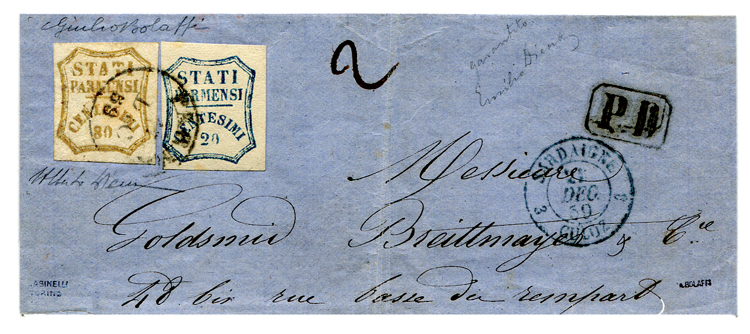 Giulio Bolaffi
garantito
Emilio Diena
STATI
PARMENSI
CENTESIMI
80
STATI
PARMENSI
CENTESIMI
20
59
2
P.D
SARDAIGNE
DEC.
59
3 CULOZ 3
Alberto Diena
Messieurs
Goldsmid Breittmayer & Cie
42 bis rue basse du rempart
GABINELLI
TORINO
A.BOLAFFI